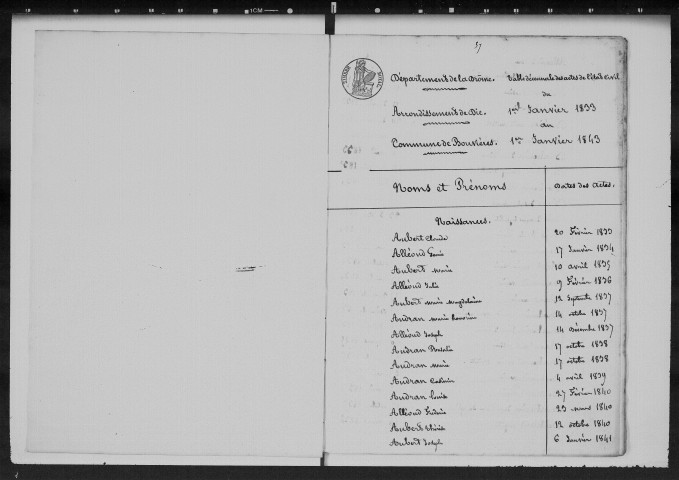 57
Département de la Drôme. Table décennale des actes de l'état civil
du
Arrondissement de Die. 1er Janvier 1833
au
Commune de Bouvières. 1er Janvier 1843
Noms et Prénoms Dates des Actes.
Naissances.
Aubert Claude 20 Février 1833
Alléoud 17 Janvier 1834
Aubert Marie 10 avril 1835
Alléoud Julie 9 Février 1836
Aubert Marie Magdelaine 12 Septembre 1837
Audran Marie 14 octobre 1837
Alléoud Joseph 14 Décembre 1837
Audran Rosalie 17 octobre 1838
Audran Marie 17 octobre 1838
Audran 4 avril 1839
Audran Louise 27 Février 1840
Alléoud 23 mars 1840
Aubert 12 octobre 1840
Aubert Joseph 6 Janvier 1841